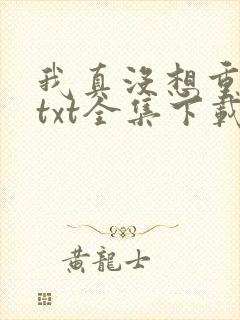 我真没想重
txt全集下載
黃龍士